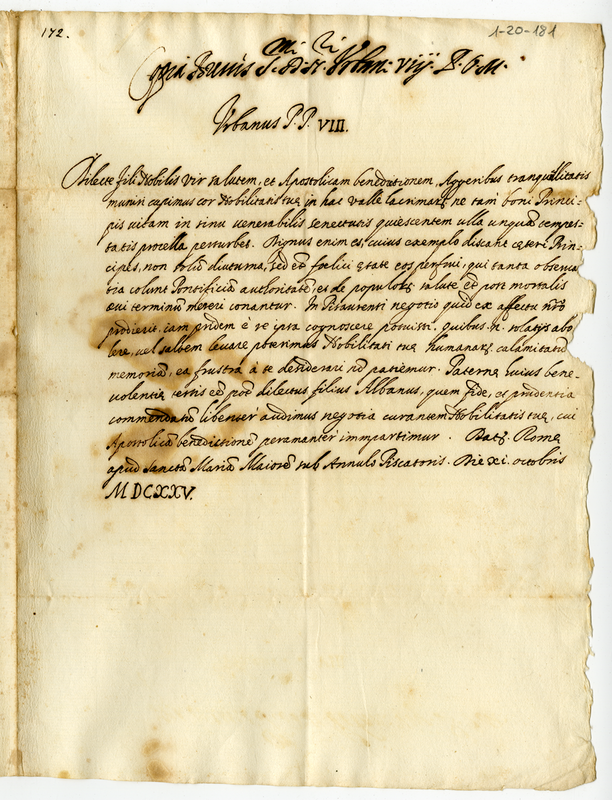 172.
1-20-181
Copia Brevis S.mi D. N. Urbani viij P. O. M.
Urbanus P.P. VIII.
Dilecte fili Nobilis Vir salutem, et Apostolicam benedictionem. Aggeribus tranquillitatis
muniri cupimus cor Nobilitatis tuę in hac valle lacrimarȝ ne tam boni Princi-
pis vitam in sinu venerabilis senectutis quiescentem ulla unquā tempes-
tatis procella perturbet. Dignus enim es, cuius exemplo discāt cęteri Prin-
cipes, non solū diuturna, sed et foelici ętate eos perfrui, qui tanta observā
tia colunt Pontificiā authoritatē, et de populorȝ salute et post mortalis
ęvi terminū mereri conantur. In Pisaurensi negotio quid ex affectu nr̃o
prodierit iam pridem è re ipsa cognoscere potuisti, quibus n. solatijs abo
lere, vel saltem levare poterimus Nobilitati tuę humanarȝ calamitatū
memoriam, ea frustra à te desiderari nō patiemur. Paternę huius bene-
volentię testis eē pōt dilectus filius Albanus, quem fide, et prudentia
commendatū libenter audimus negotia curantem Nobilitatis tuę, cui
Apostolicā benedictionē peramanter immpartimur. Datȝ Romę
apud Sanctā Mariā Maiorē sub Annulo Piscatoris. Die xi. octobris
MDCXXV.